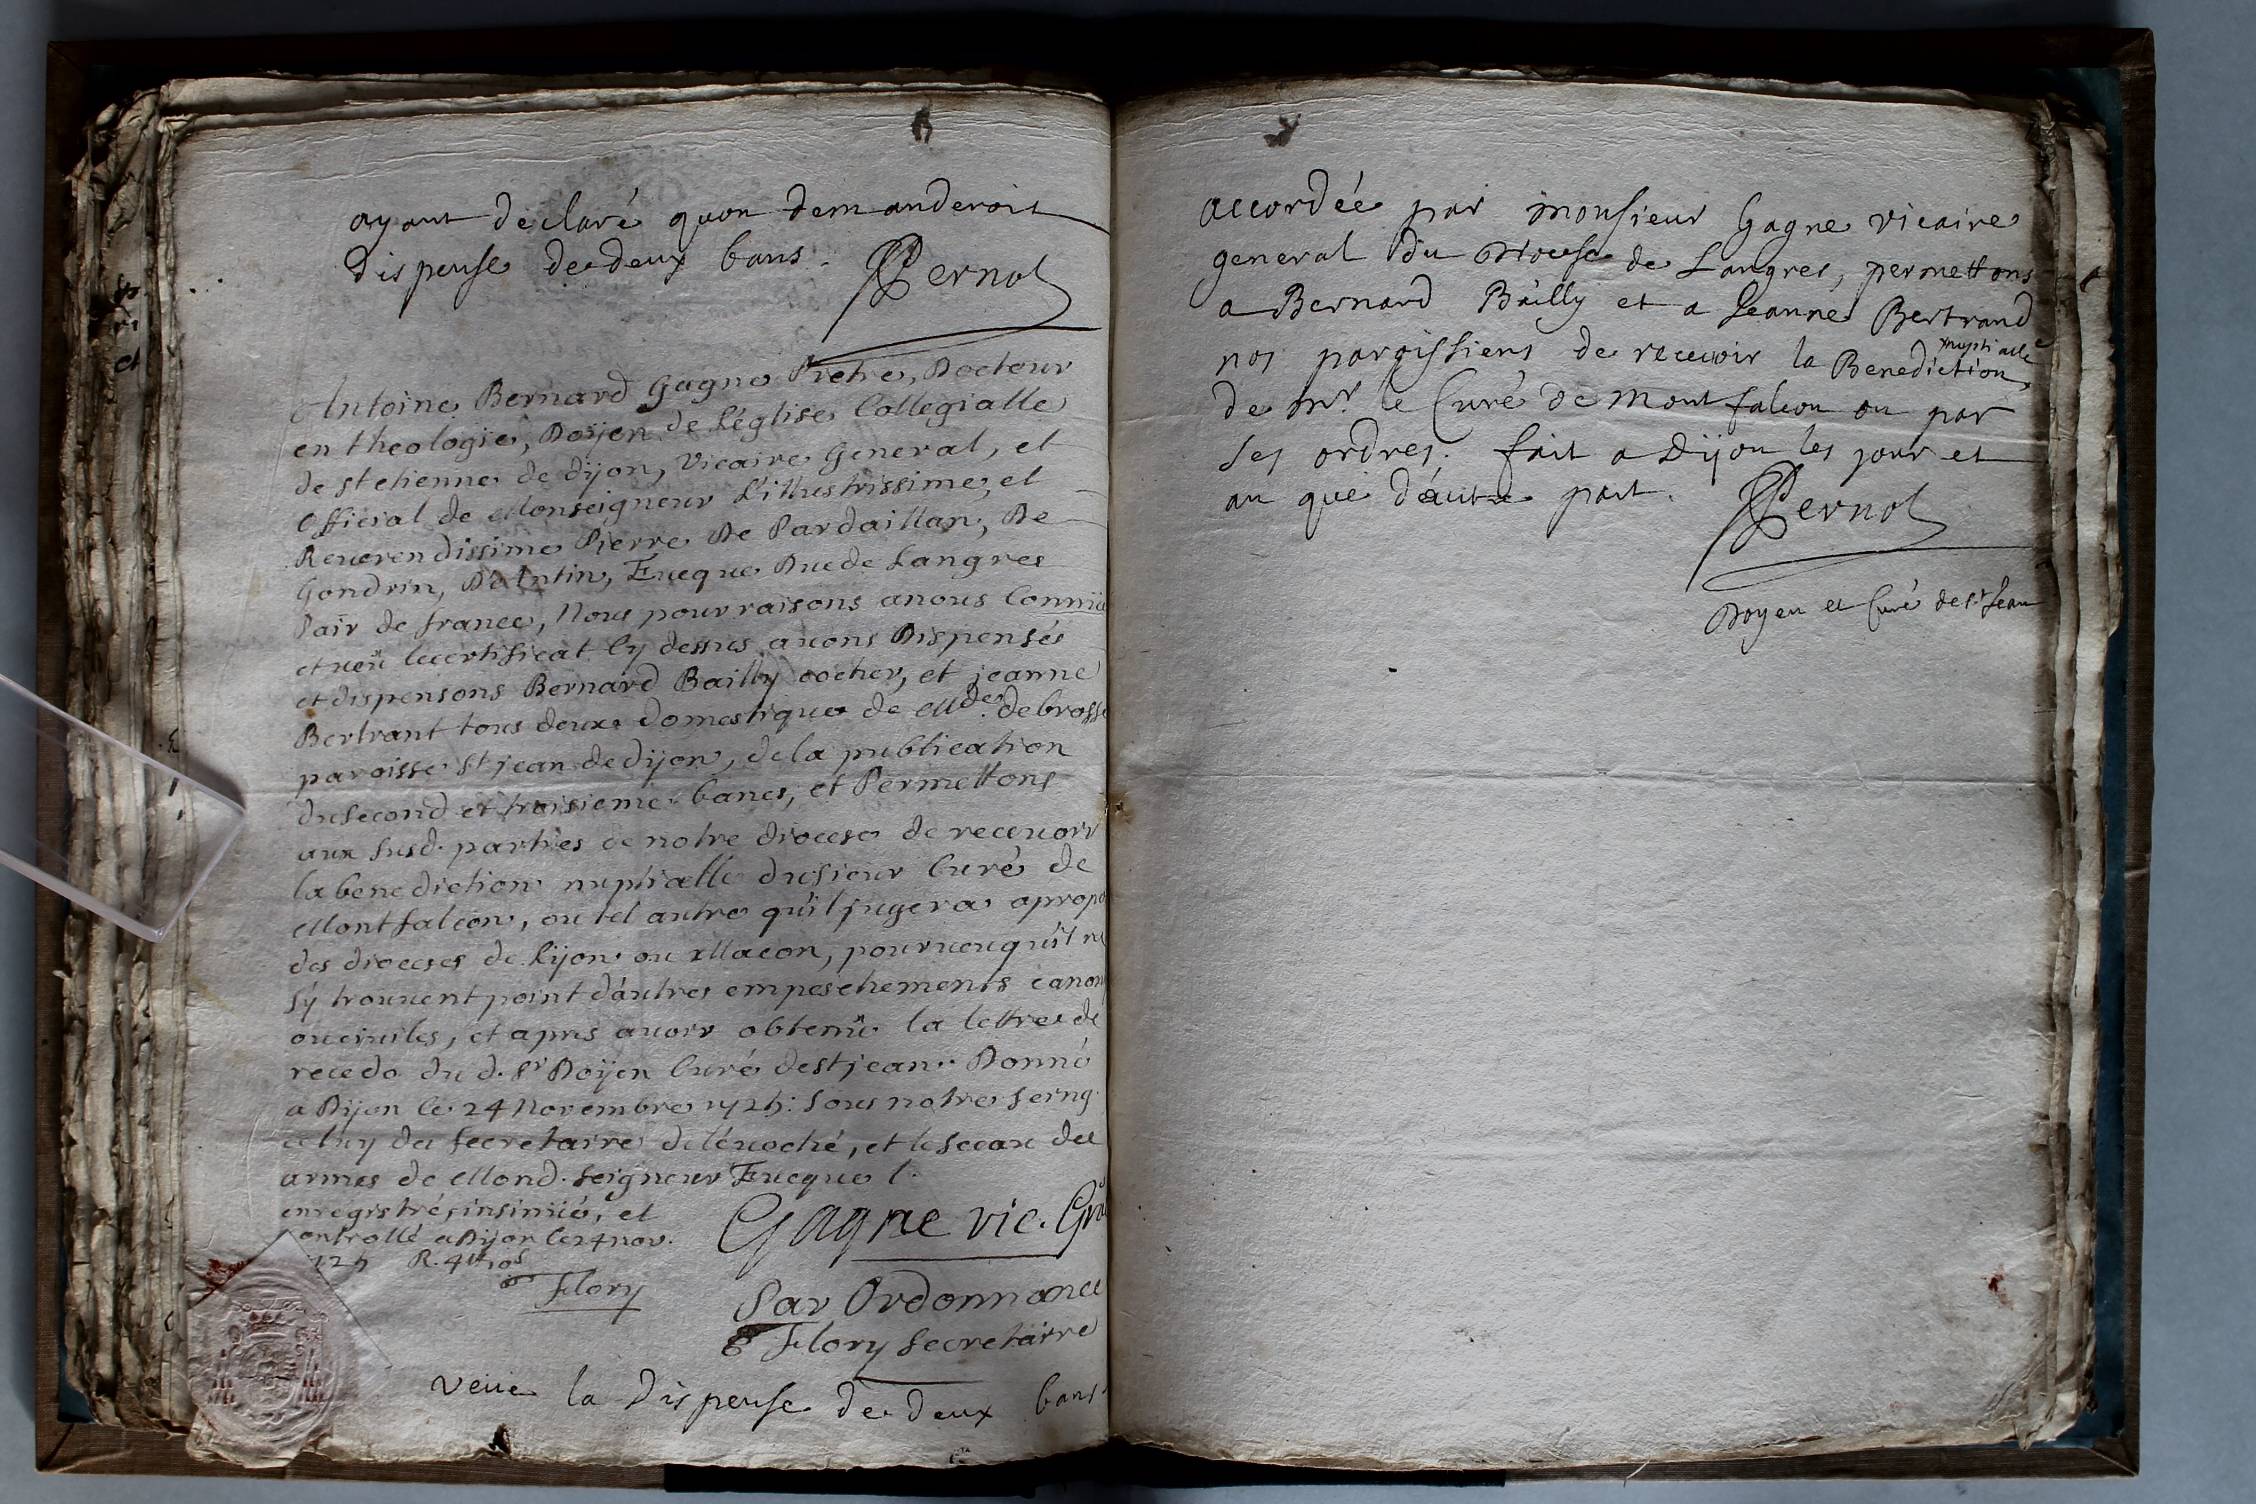 ayant declaré quon demanderoit
dispense de deux bans.
Pernot
Antoine Bernard Gagne Pretre, Docteur
en theologie, Doÿen de L'église Collegialle
de st etienne de dijon, Vicaire General, et
Official de Monseigneur L'illustrissime, et
Reuerendissime Pierre De Pardaillan, De
Gondrin, D'Antin, Eueque Duc de Langres
Pair de france, Nous pour raisons a nous Connüe
et ueü le certificat Cy dessus auons Dispensés
et dispensons Bernard Bailly cocher, et jeanne
Bertrant tous deux domestique de Mde. debrosse
paroisse st jean de dijon, de la publication
du second et troisieme bancs, et Permettons
aux susd. parties de notre diocese de receuoir
la benediction nuptialle du sieur Curé de
Montfalcon, ou tel autre qu'il jugera apropo
des dioceses de Lijon ou Macon, pourueu qu'il ne
s'y trouuent point d'autres empeschements canon
ou ciuiles, et apres auoir obtenüe la lettre de
recedo du d. Sr Doÿen Curé de st jean. Donné
a Dijon le 24 Novembre 1725: sous notre seing
celuy du secretaire de l'éuoché, et le sceau des
armes de Mond. seigneur Eueque
enregistré, insinüé, et
controllé a Dijon le 24 nov.
1725 R. 4tt 10s
Flory
Gagne vic. Gral
Par Ordonnance
Flory secretaire
Veüe la Dispense de deux bans
accordée par monsieur Gagne vicaire
general du Diocese de Langres, permettons
a Bernard Bailly et a Jeanne Bertrand
nos paroissiens de recevoir la Benediction nuptialle
de Mr. le Curé de Montfalcon ou par
ses ordres. fait a Dijon les jour et
an que d'autre part.
Pernot
Doyen et Curé de st Jean